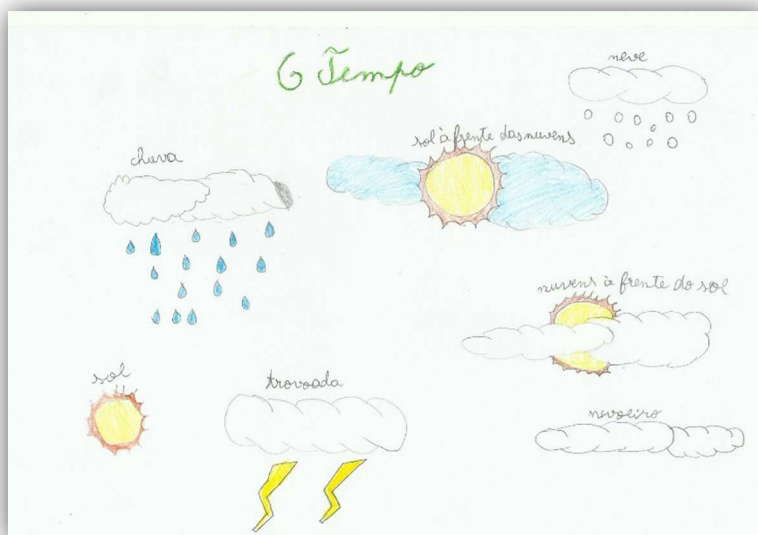 O Tempo
neve
sol à frente das nuvens
chuva
nuvens à frente do sol
sol
trovoada
nevoeiro